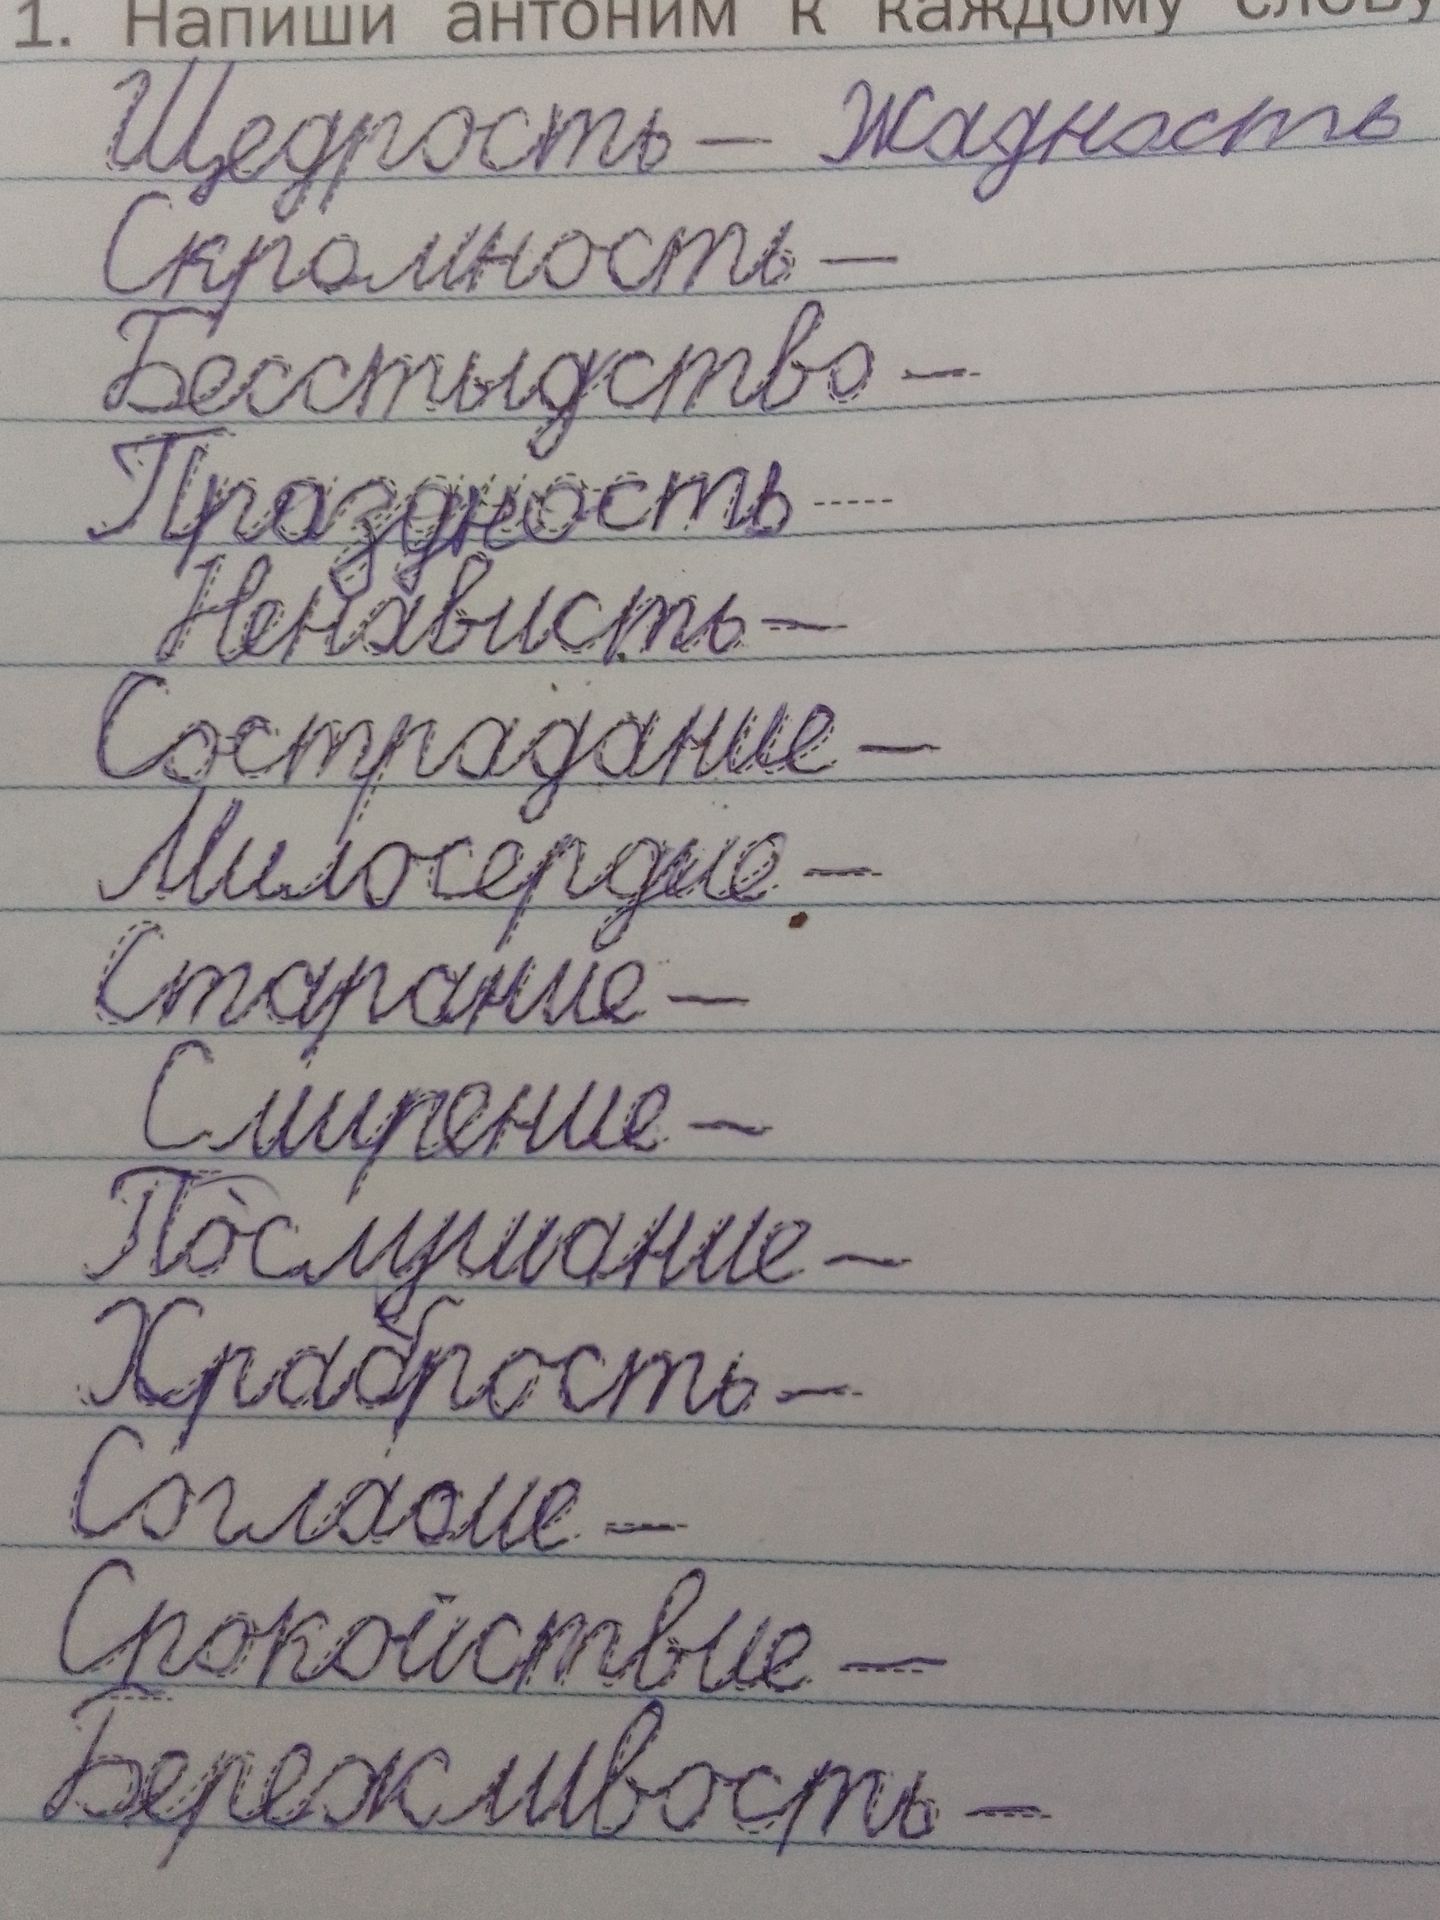 1. Напиши антоним к каждому слову
Щедрость – Жадность
Скромность –
Бесстыдство –
Праздность -----
Ненависть –
Сострадание –
Милосердие –
Старание –
Смирение –
Послушание –
Храбрость –
Согласие –
Спокойствие –
Бережливость –